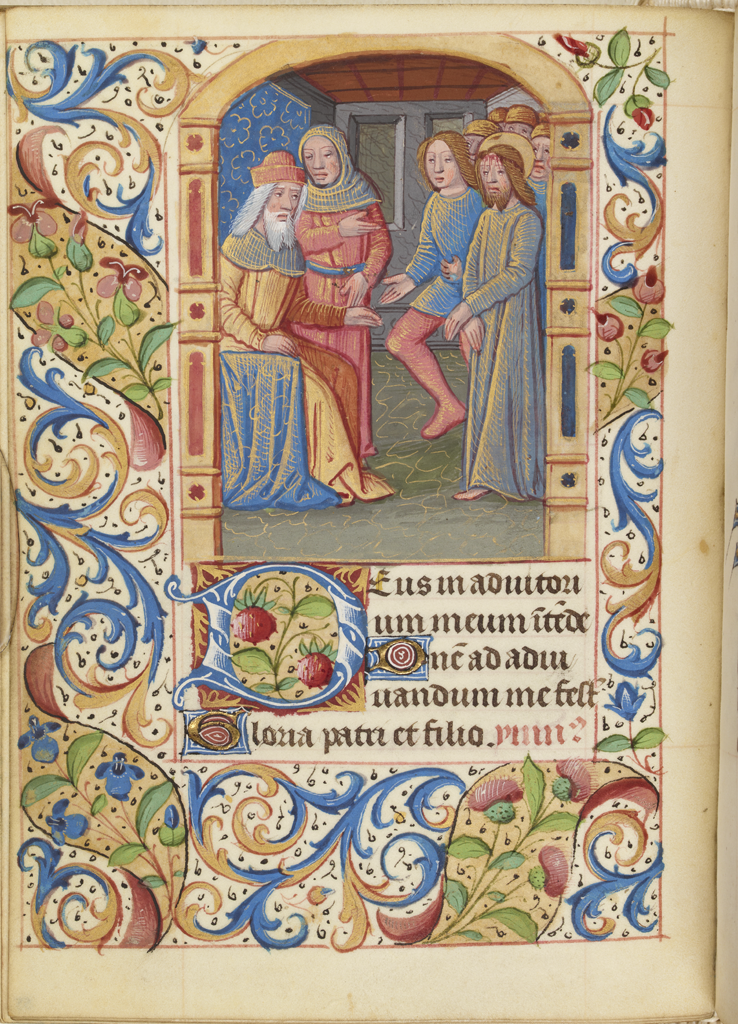 Deus in adiutori
um meum ītēde
Dn̄e ad adiu
uandum me fest̄
Gloria patri et filio. ymn̄?